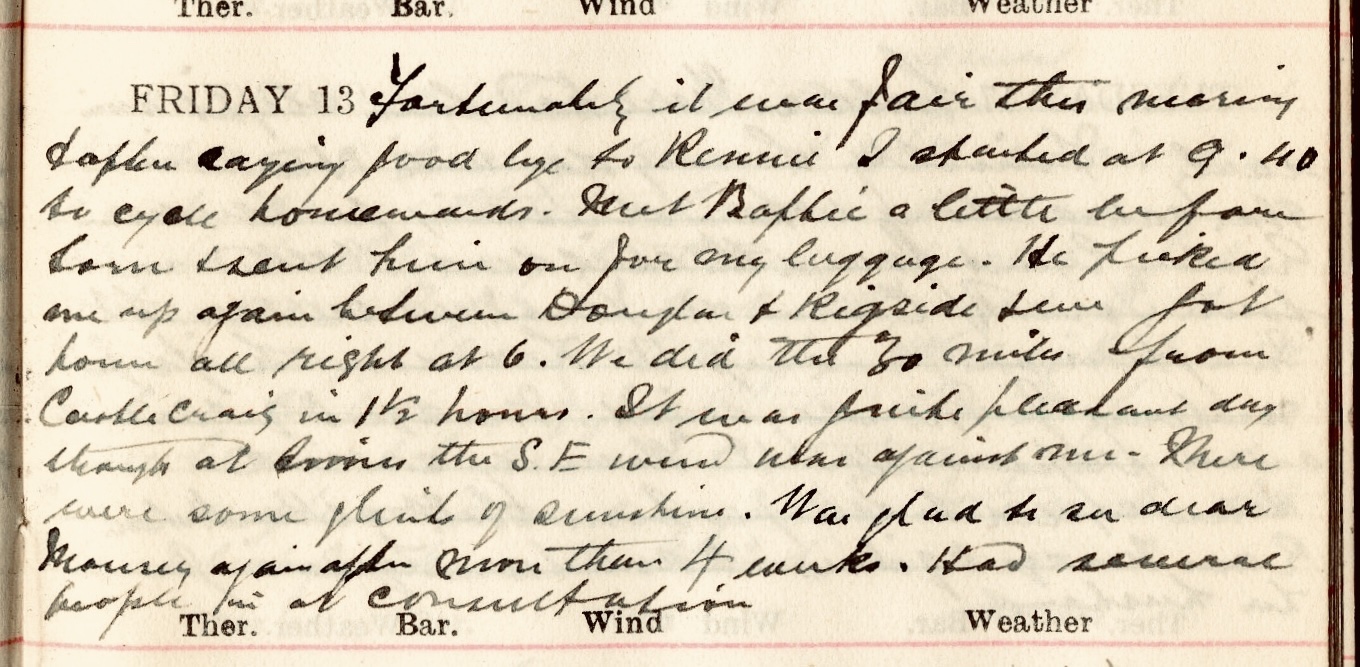 Ther. Bar. Wind Weather
FRIDAY 13 Fortunately it was fair this morning
& after saying good bye to Rennie I started at 9.40
to cycle homewards. Met Baffie a little before
& sent him on for my luggage. He picked
me up again between Douglas & Rigside & we got
home all right at 6. We did the 30 miles from
Castlecraig in 1½ hours. It was quite pleasant day
though at times the S.E wind was against me. There
were some glints of sunshine. Was glad to see dear
Mousey again after more than 4 weeks. Had several
people in at consultation
Ther. Bar. Wind Weather